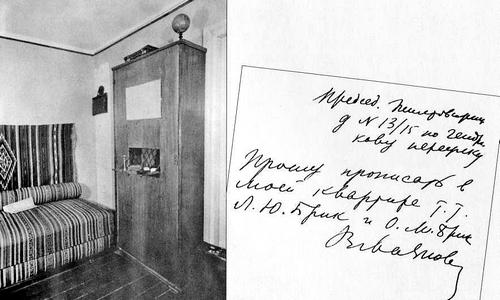 Председ. Жилтоварищ
д N 13/15 по Гендри
кову переулку
Прошу прописать в
моей квартире т.т.
Л.Ю. Брик и О.М. Брик
В Маяковс